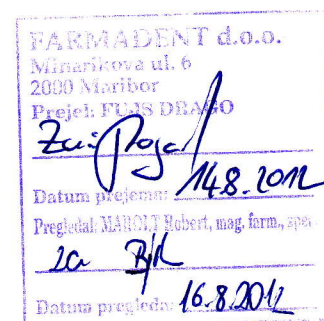 FARMADENT d.o.o.
Minarikova ul. 6
2000 Maribor
Prejel: FUJS DRAGO
Datum prejema: 14.8.2012
Pregledal: MAROLT Robert, mag. farm., spec.
za
Datum pregleda: 16.8.2012